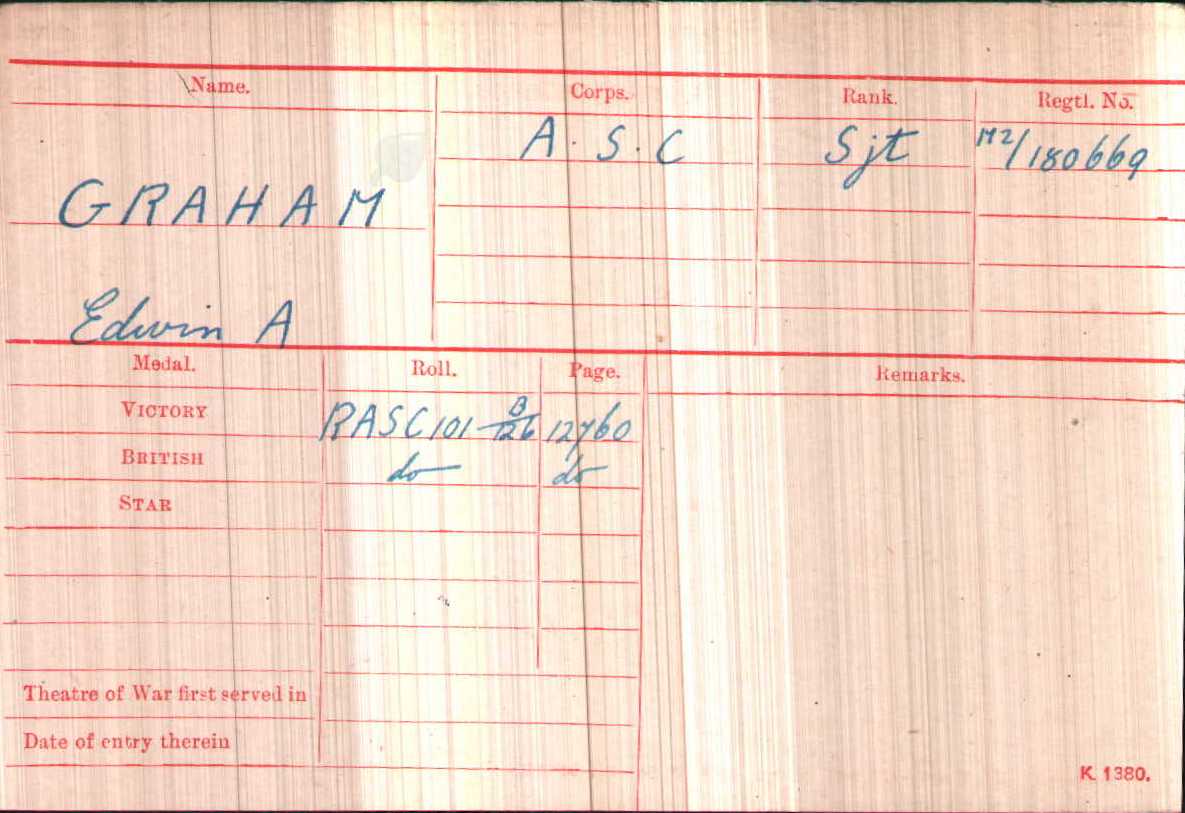 Name. Corps. Rank. Regtl. No.
A. S. C Sjt M2/180669
GRAHAM
Edwin A
Medal. Roll. Page. Remarks.
VICTORY RASC 101 B/126 12760
BRITISH do do
STAR
Theatre of War first served in
Date of entry therein
K 1380.